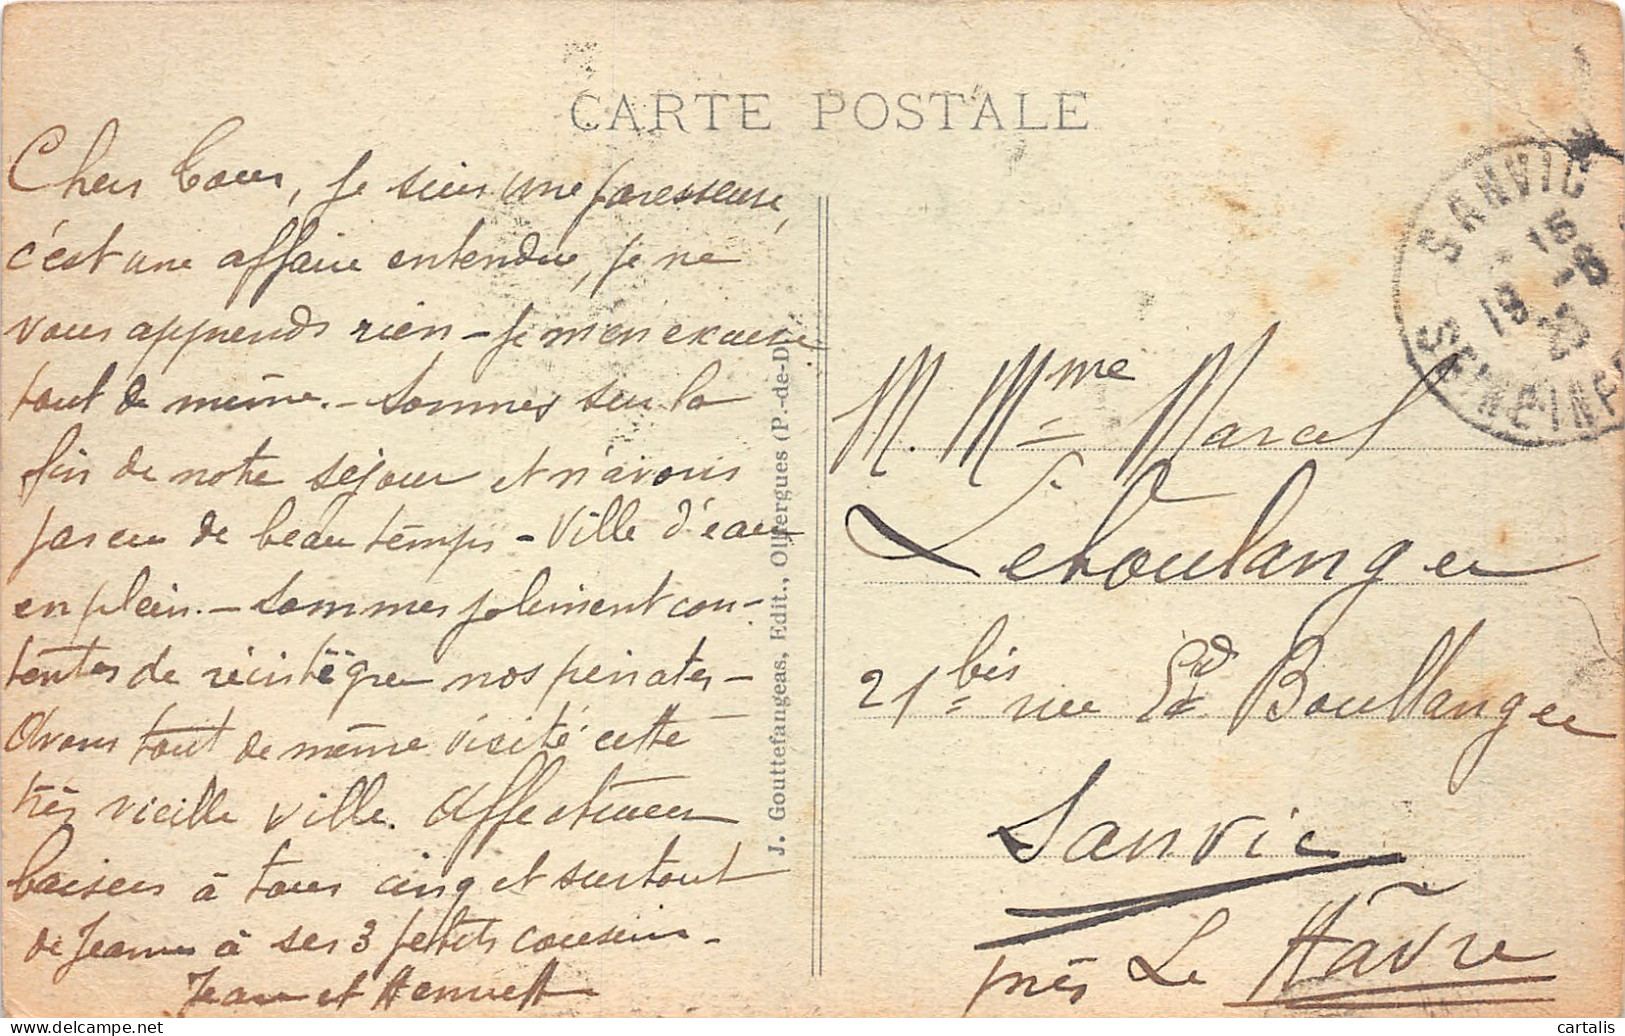 CARTE POSTALE
Chers Tous, je suis une paresseuse,
c'est une affaire entendue, je ne
vous apprends rien - Je m'en excuse
tout de même. - Sommes sur la
fin de notre séjour et n'avons
pas eu de beau temps - Ville d'eau
en plein. - Sommes joliment con-
tentes de réintégrer nos pénates -
Avons tout de même visité cette
très vieille ville. Affectueux
baisers à tous cinq et surtout
de Jeanne à ses 3 petits cousins -
Jean et Henriette
J. Gouttefangeas, Edit., Olliergues (P.-de-D.)
SANVIC
15
19 -8
25
SEINE-INF
M. Mme Marcel
Leboulanger
21 bis rue Ed. Boullanger
Sanvic
près Le Hâvre
cartalis
www.delcampe.net